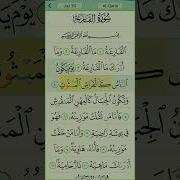 Juz 30
Al-Qaria
سُورَةُ القَارِعَةِ
بِسْمِ ٱللَّهِ ٱلرَّحْمَٰنِ ٱلرَّحِيمِ
ٱلْقَارِعَةُ ١ مَا ٱلْقَارِعَةُ ٢ وَمَآ
أَدْرَىٰكَ مَا ٱلْقَارِعَةُ ٣ يَوْمَ يَكُونُ
ٱلنَّاسُ كَٱلْفَرَاشِ ٱلْمَبْثُوثِ ٤
وَتَكُونُ ٱلْجِبَالُ كَٱلْعِهْنِ ٱلْمَنفُوشِ ٥
فَأَمَّا مَن ثَقُلَتْ مَوَٰزِينُهُۥ ٦ فَهُوَ
فِى عِيشَةٍ رَّاضِيَةٍ ٧ وَأَمَّا مَنْ خَفَّتْ
مَوَٰزِينُهُۥ ٨ فَأُمُّهُۥ هَاوِيَةٌ ٩ وَمَآ
أَدْرَىٰكَ مَا هِيَهْ ١٠ نَارٌ حَامِيَةٌۢ ١١